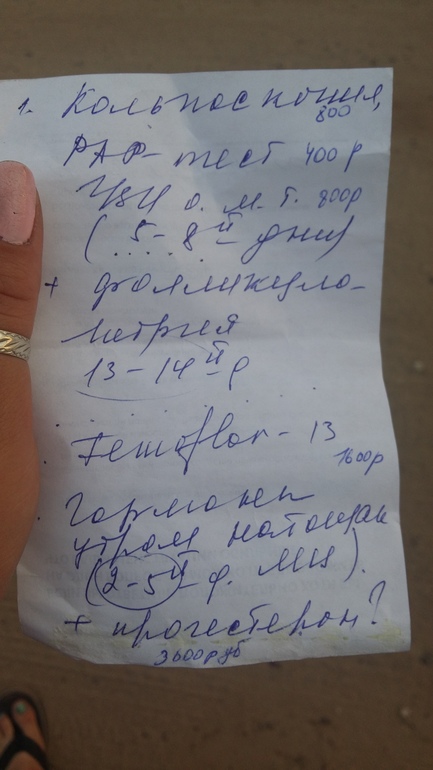 1. Кольпоскопия,
800
PAP-тест 400 р
УЗИ о. м. т. 800р
(5-8й дни)
+ фолликуло-
метрия
13-14й д
Femoflor - 13
1600р
Гормоны
утром натощак
(2-5й д. МЦ).
+ прогестерон?
3600руб